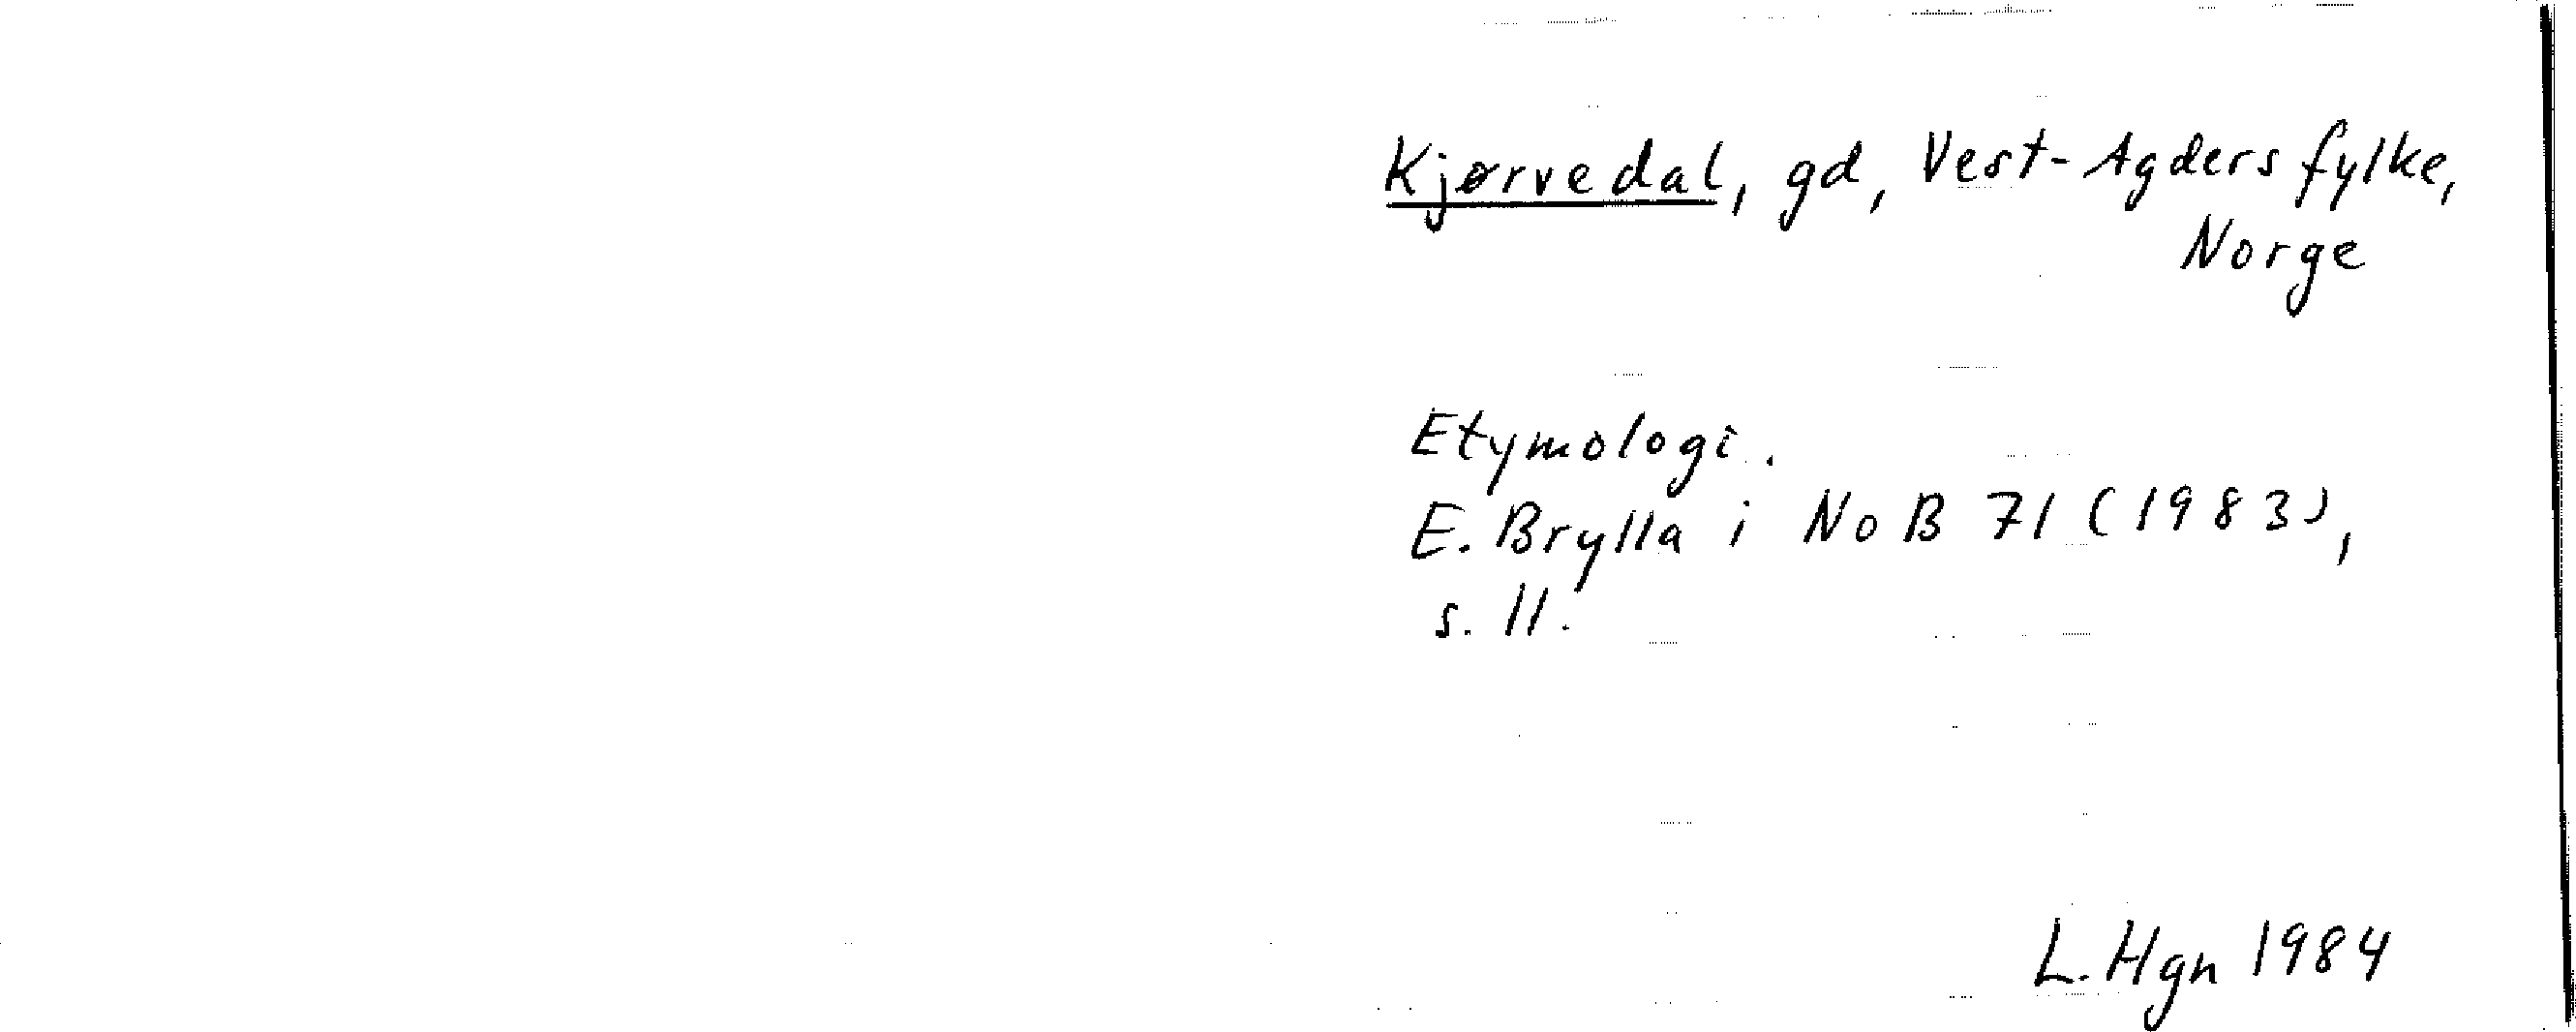 Kjørvedal, gd, Vest-Agders fylke,
Norge
Etymologi.
E. Brylla i NoB 71 (1983),
s. 11.
L. Hgn 1984